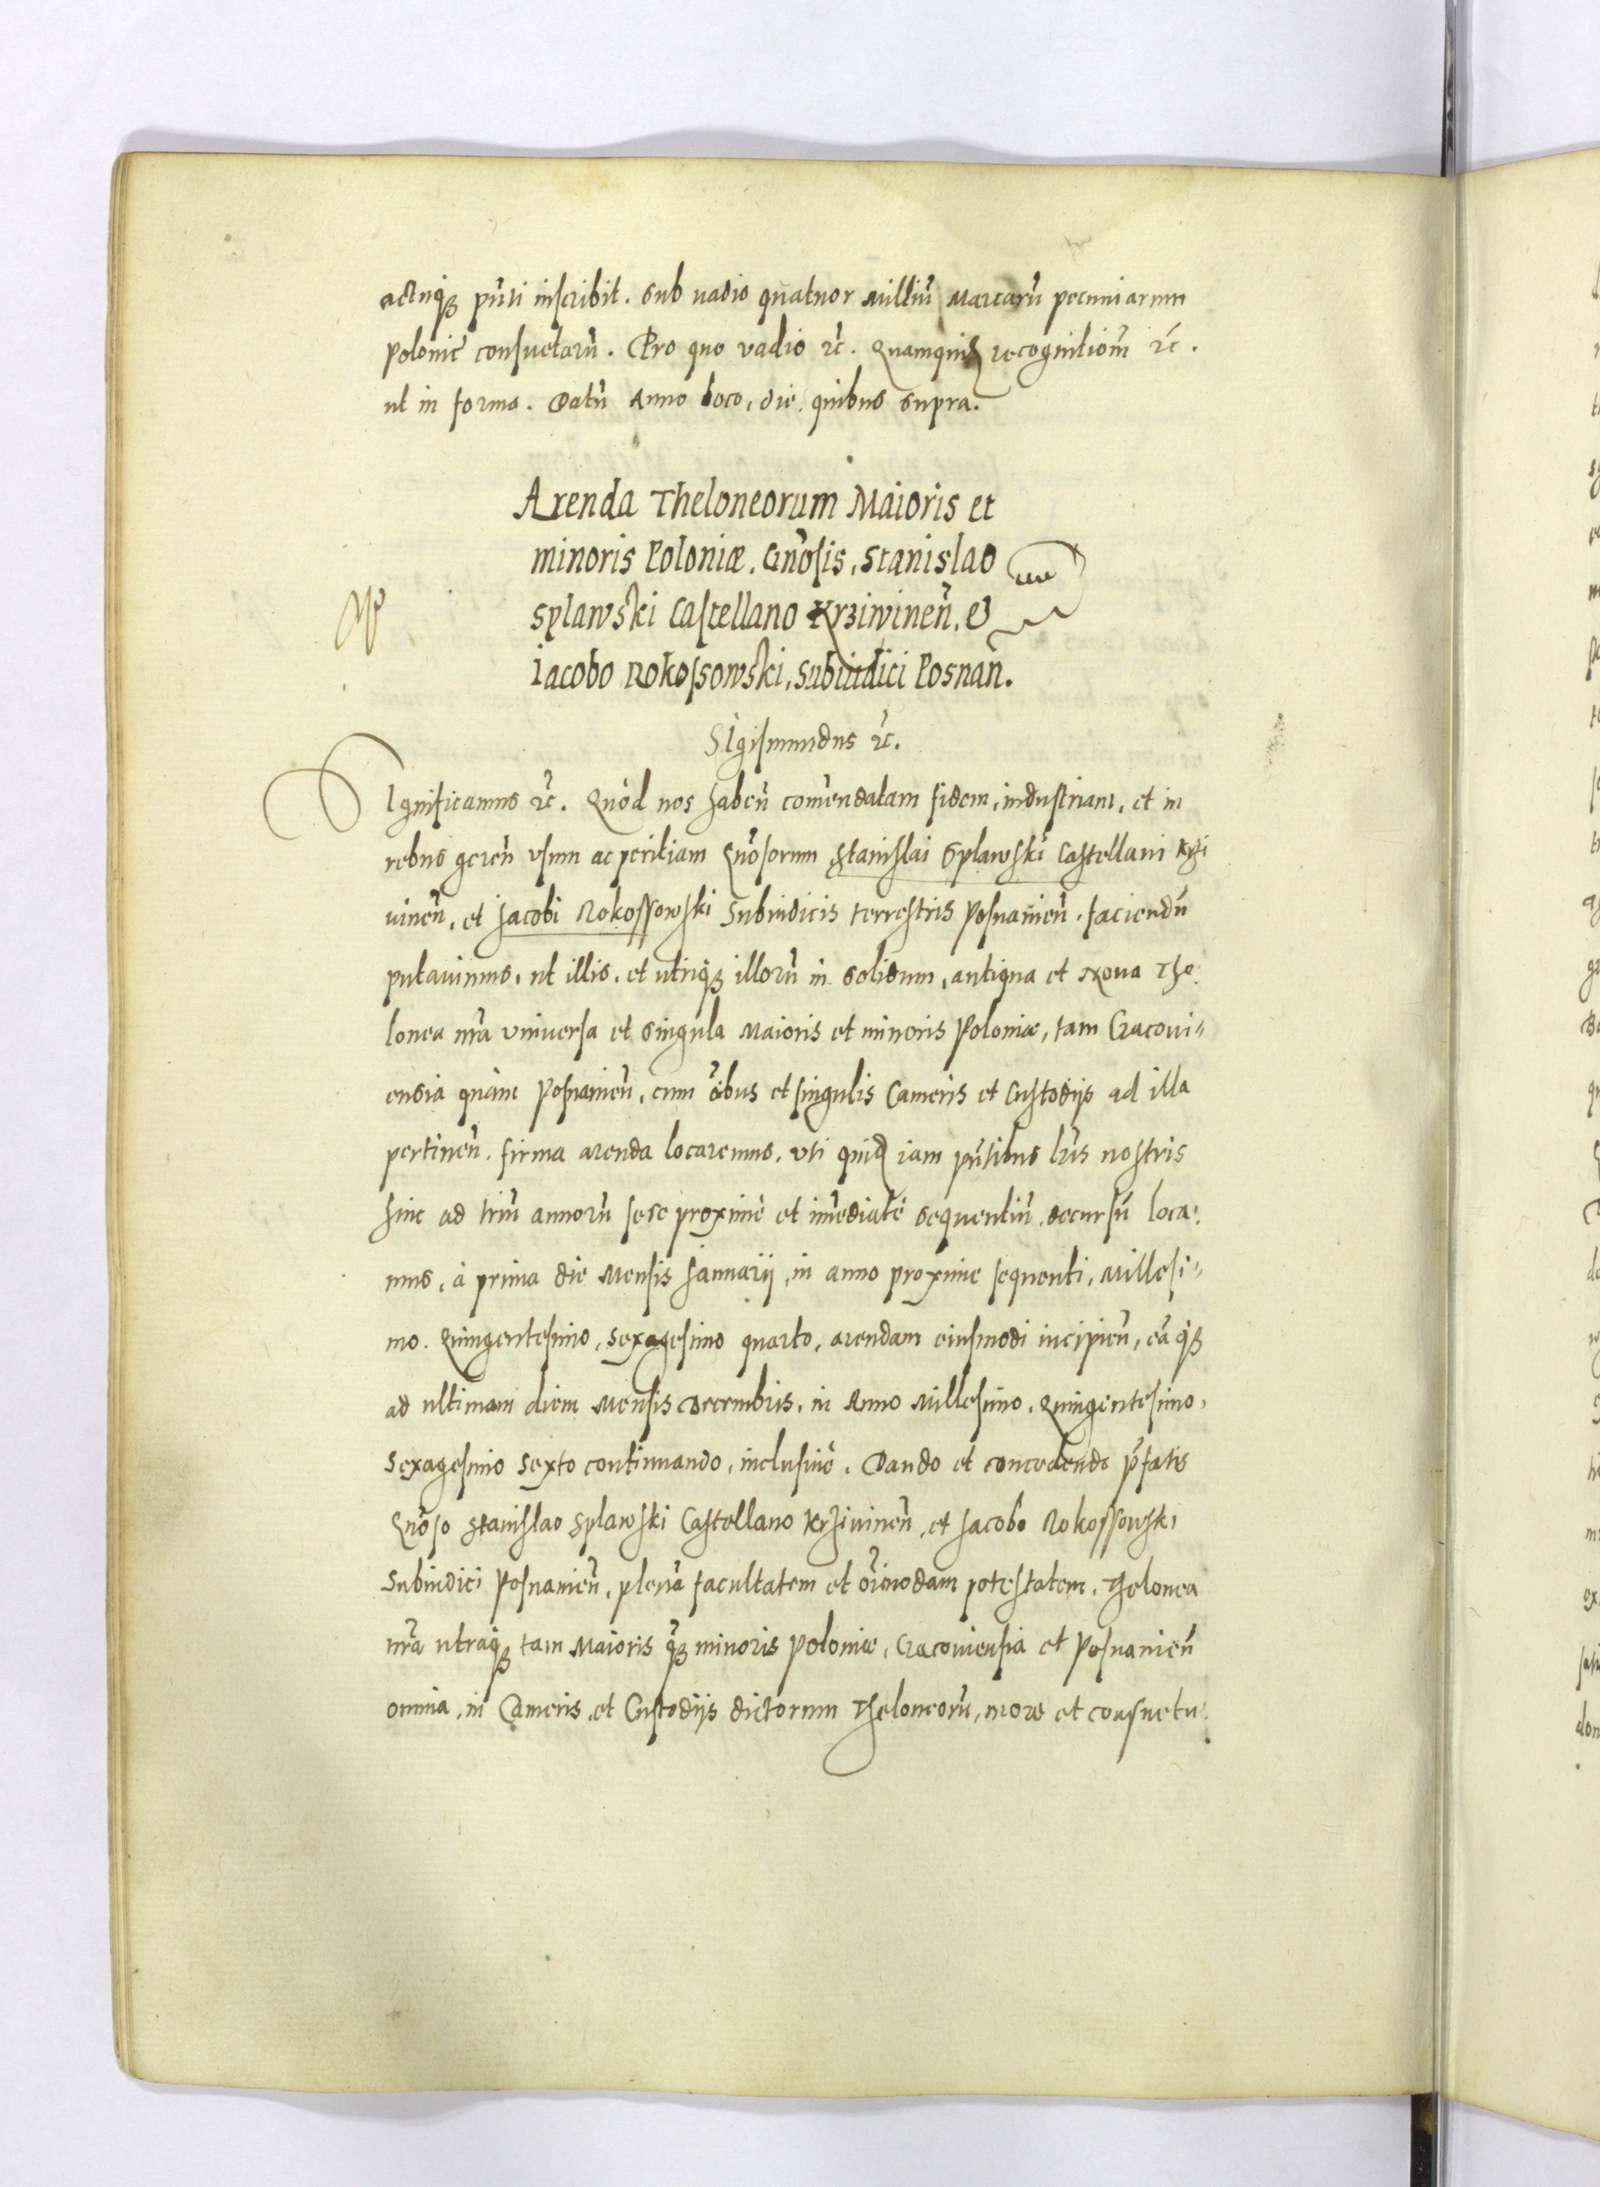 actuqꝫ pñti inscribit. Sub uadio quatuor Milliũ Marcarũ pecuniarum
Polonic̃ consuetarũ. Pro quo vadio ꝛc̃. recognitiom̃ ꝛc̃.
ut in forma. Datũ Anno loco, die. quibus supra.
Arenda Theloneorum Maioris et
minoris Poloniæ. Gñosis, Stanislao
Splawski Castellano Krziwineñ. et
Iacobo Rokossowski, Subiudici Posnañ.
Sigismundus ꝛc̃.
Significamus ꝛc̃. Quòd nos habeñ com̃endatam fidem, industriam, et in
rebus gereñ usum ac peritiam Gñosorum Stanislai Splawski Castellani Krzi
vineñ, et Jacobi Rokossowski Subiudicis terrestris Posnanieñ. faciendũ
putauimus, ut illis, et utriqꝫ illorũ in solidum, antiqua et Noua The
lonea nr̃a vniuersa et singula Maioris et minoris Poloniæ, tam Cracoui-
ensia quàm Posnanieñ, cum õibus et singulis Cameris et Custodijs ad illa
pertineñ. firma arenda locaremus, vti quidē iam pñtibus lr̃is nostris
hinc ad triũ annorũ sese proximè et im̃ediatè sequentiũ decursũ loca-
mus, à prima die Mensis Januarij, in anno proxime sequenti, Millesi-
mo. Quingentesimo, Sexagesimo quarto, arendam eiusmodi incipieñ, eãqꝫ
ad ultimam diem Mensis Decembris, in Anno Millesimo, Quingentesimo,
Sexagesimo Sexto continuando, inclusiuè. Dando et concedendo p̃fatis
Gñoso Stanislao Splawski Castellano Krziuineñ, et Jacobo Rokossowski
Subiudici Posnanieñ, plenã facultatem et õimodam potestatem, Thelonea
nr̃a utraqꝫ tam Maioris q̃ꝫ minoris Poloniæ, Cracouiensia et Posnanieñ
omnia, in Cameris, et Custodijs dictorum Theloneorũ, more et consuetu-